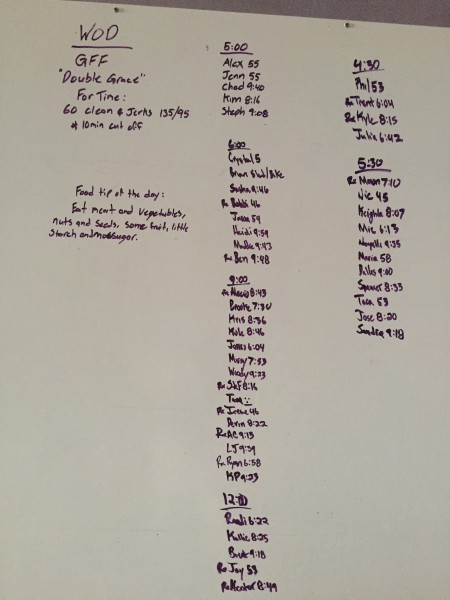 WOD
GFF
"Double Grace"
For Time:
60 clean & Jerks 135/95
* 10 min cut off
Food tip of the day:
Eat meat and vegetables,
nuts and seeds, some fruit, little
starch and no sugar.
5:00
Alex 55
Jenn 55
Chad 9:40
Kim 8:16
Steph 9:08
6:00
Crystal 5
Brian
Sasha 9:46
Rx 46
Jason 59
Heidi 9:59
9:43
Rx Ben 9:48
9:00
Rx 8:43
Brooke 7:30
Kris 8:36
8:46
James 6:04
7:53
Woody 9:23
Rx 8:16
Tara
Rx Irene 46
Devin 8:22
Rx AC 9:15
LJ 9:39
Rx Ryan 6:58
MP 9:23
12:00
Randi 6:22
Kallie 8:25
9:18
Rx Jay 53
Rx Hector 8:49
4:30
Phil 53
Rx Trent 6:04
Rx Kyle 8:15
Julie 6:42
5:30
Rx Mason 7:10
Vic 45
Keighla 8:07
Mic 6:13
9:35
Maria 58
Dallas 9:00
Spencer 8:33
Tara 53
Jose 8:20
Sandra 9:18